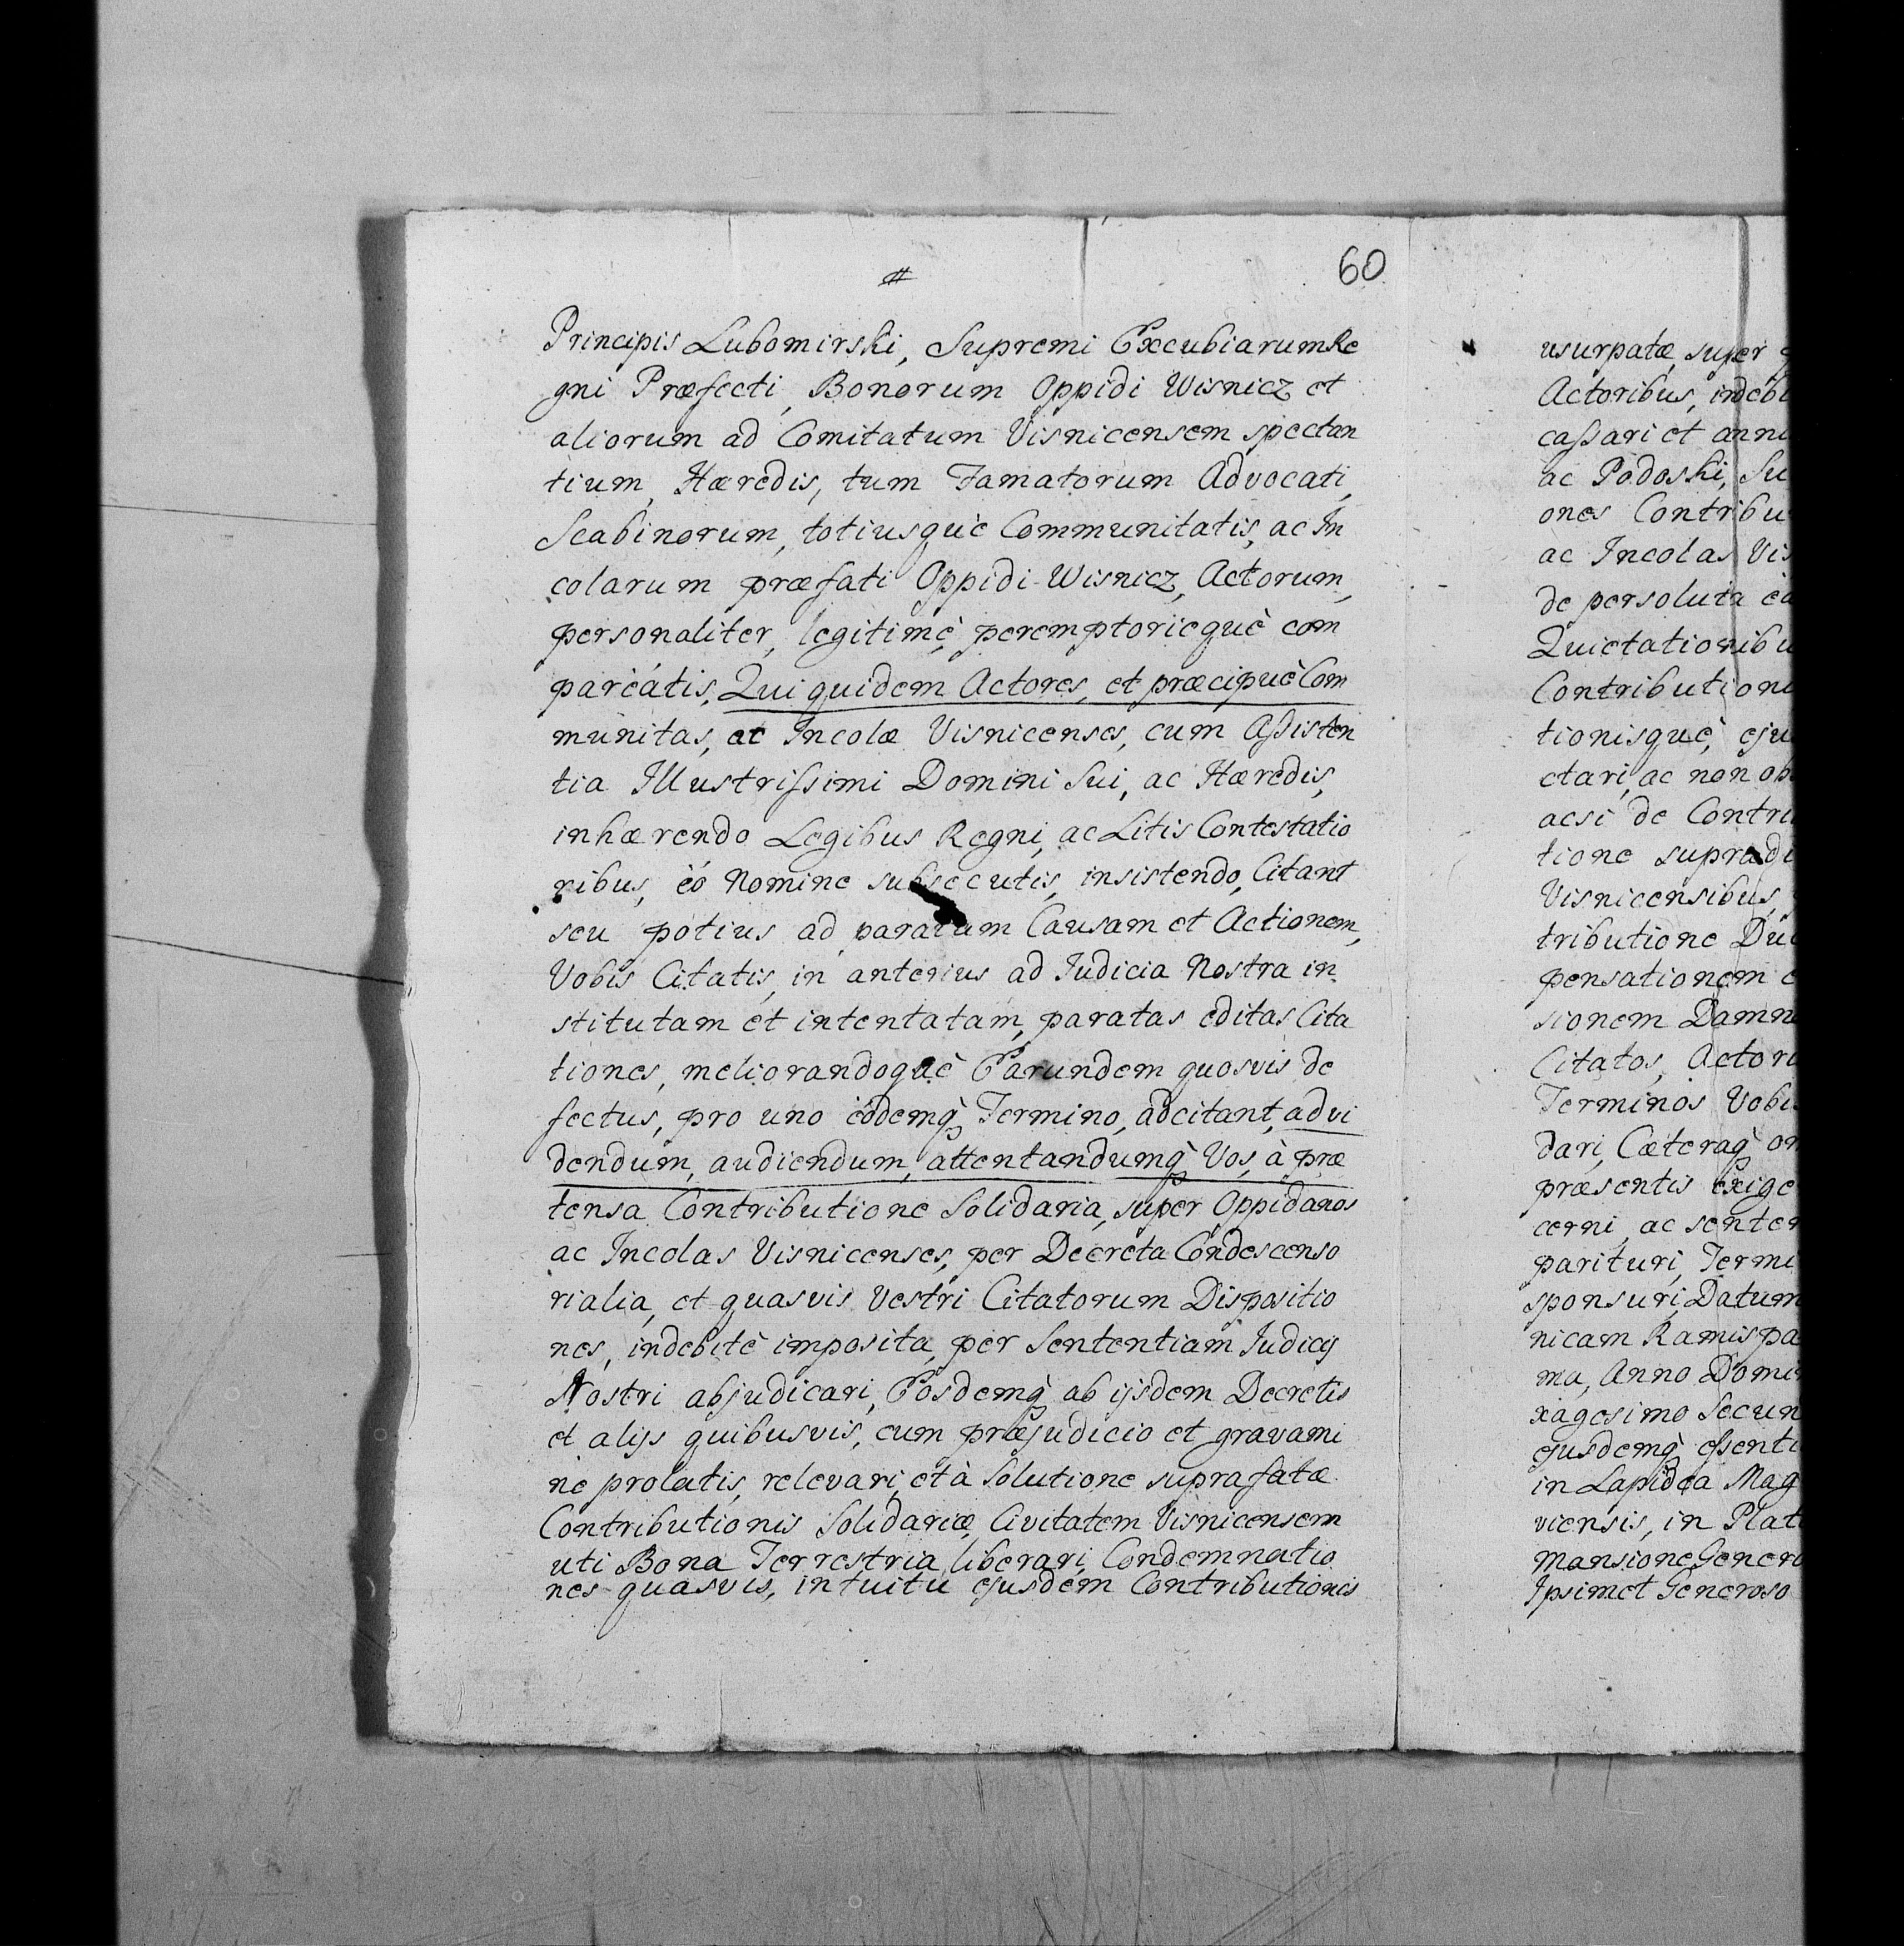 #
60
Principis Lubomirski, Supremi Excubiarum Re
gni Præfecti, Bonorum Oppidi Wisnicz et
aliorum ad Comitatum Visnicensem spectan
tium, Hæredis, tum Famatorum Advocati,
Scabinorum, totiusquè Communitatis, ac In
colarum præfati Oppidi Wisnicz, Actorum,
personaliter, legitimè, peremptoriequè com
pareatis, Qui quidem Actores, et præcipuè Com
munitas, ac Incolæ Visnicenses, cum Assisten
tia Illustrissimi Domini Sui, ac Hæredis,
inhærendo Legibus Regni, ac Litis Contestatio
nibus, eo Nomine subsecutis, insistendo, Citant
seu potius ad paratam Causam et Actionem,
Vobis Citatis, in anterius ad Iudicia Nostra in
stitutam et intentatam, paratas editas Cita
tiones, meliorandoquè Earundem quosvis de
fectus, pro uno eodemq̀ Termino, adcitant, ad vi
dendum, audiendum, attentandumq̀ Vos, à præ
tensa Contributione Solidaria, super Oppidanos
ac Incolas Visnicenses, per Decreta Condescenso
rialia, et quasvis Vestri Citatorum Dispositio
nes, indebitè imposita, per Sententiam Iudicij
Nostri abjudicari, Eosdemq̀ ab ijsdem Decretis
et alijs quibusvis, cum præjudicio et gravami
ne prolatis, relevari, et à Solutione suprafatæ
Contributionis Solidariæ, Civitatem Visnicensem
uti Bona Terrestria liberari, Condemnatio
nes quasvis, intuitu ejusdem Contributionis
usurpatæ, super
Actoribus, indebi
cassari et anni
ac Podoski, Su
ones Contribu
ac Incolas Vis
de persoluta ea
Quietationibu
Contributioni
tionisquè, eju
ctari, ac non ob
acsi de Contri
tione supradi
Visnicensibus,
tributione Du
pensationem
sionem Damn
Citatos, Actori
Terminos Vobis
dari, Cæteraq̀ om
præsentis exige
cerni, ac senten
parituri, Termi
sponsuri, Datum
nicam Ramispa
ma, Anno Domin
xagesimo Secun
ejusdemq̀ essenti
in Lapidea Mag
viensis, in Plat
mansione Genero
Ipsimet Generoso